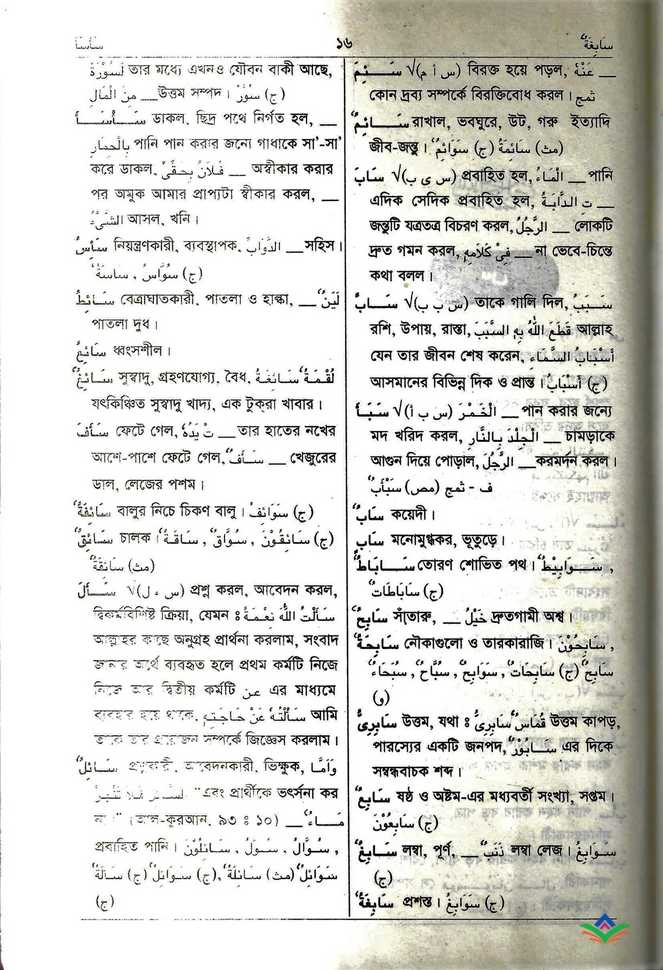 سَابِغَةٌ
১৬
سَأسَأ
أسُوْرَةٌ তার মধ্যে এখনও যৌবন বাকী আছে,
مِنَ الْمَالِ __উত্তম সম্পদ। سُوَرٌ (ج)
سَأسَأ ডাকল, ছিদ্র পথে নির্গত হল, __
بِالْحِمَارِ পানি পান করার জন্যে গাধাকে সা'-সা'
করে ডাকল, فُلاَنٌ بِحَقِّىْ __ অস্বীকার করার
পর অমুক আমার প্রাপ্যটা স্বীকার করল, __
الشَّىْءُ আসল, খনি।
سَأَسٌ নিয়ন্ত্রণকারী, ব্যবস্থাপক, الدَّوَابِّ __সহিস।
(ج) سُوَاسٌ, سَاسَةٌ
سَائِطٌ বেত্রাঘাতকারী, পাতলা ও হাল্কা, __ لَبَنٌ
পাতলা দুধ।
سَائِعٌ ধ্বংসশীল।
سَائِغٌ সুস্বাদু, গ্রহণযোগ্য, বৈধ, لُقْمَةٌ سَائِغَةٌ
যৎকিঞ্চিত সুস্বাদু খাদ্য, এক টুকরা খাবার।
سَأَفَ ফেটে গেল, تْ يَدُهُ __ তার হাতের নখের
আশে-পাশে ফেটে গেল, سَأَفٌ __ খেজুরের
ডাল, লেজের পশম।
سَائِفَةٌ বালুর নিচে চিকণ বালু। سَوَائِفُ (ج)
سَائِقٌ চালক। سَائِقُوْنَ, سُوَّاقٌ, سَاقَةٌ (ج)
سَائِقَةٌ (مث)
سَأَلَ √(س ء ل) প্রশ্ন করল, আবেদন করল,
দ্বিকর্মবিশিষ্ট ক্রিয়া, যেমন ঃ سَألْتُ اللّٰهَ نِعْمَةً
আল্লাহর কাছে অনুগ্রহ প্রার্থনা করলাম, সংবাদ
জানার অর্থে ব্যবহৃত হলে প্রথম কর্মটি নিজে
নিজে আর দ্বিতীয় কর্মটি عن এর মাধ্যমে
ব্যবহার হয়ে থাকে, سَألْتُهُ عَنْ حَاجَتِهِ আমি
তাকে তার প্রয়োজন সম্পর্কে জিজ্ঞেস করলাম।
سَائِلٌ প্রশ্নকারী, আবেদনকারী, ভিক্ষুক, وَأمَّا
السَّائِلَ فَلاَ تَنْهَرْ "এবং প্রার্থীকে ভর্ৎসনা কর
না।" (আল-কুরআন, ৯৩ ঃ ১০) __ مَاءٌ
প্রবাহিত পানি। سَائِلُوْنَ, سُوَّلٌ, سُوَّالٌ,
سَالَةٌ (ج) سَوَائِلُ (ج), سَائِلَةٌ (مث) سَوَائِلُ
(ج)
سَئِمَ √(س أ م) বিরক্ত হয়ে পড়ল, عَنْهُ __
কোন দ্রব্য সম্পর্কে বিরক্তিবোধ করল। ثمج
سَائِمٌ রাখাল, ভবঘুরে, উট, গরু ইত্যাদি
জীব-জন্তু। سَوَائِمُ (ج) سَائِمَةٌ (مث)
سَابَ √(س ى ب) প্রবাহিত হল, الْمَاءُ __ পানি
এদিক সেদিক প্রবাহিত হল, تِ الدَّابَةُ __
জন্তুটি যত্রতত্র বিচরণ করল, الرَّجُلُ __ লোকটি
দ্রুত গমন করল, فِىْ كَلاَمِهِ __ না ভেবে-চিন্তে
কথা বলল।
سَابٌّ √(س ب ب) তাকে গালি দিল, سَبَبٌ
রশি, উপায়, রাস্তা, قَطَعَ اللّٰهُ بِهِ السَّبَبَ আল্লাহ
যেন তার জীবন শেষ করেন, أسْبَابُ السَّمَاءِ
আসমানের বিভিন্ন দিক ও প্রান্ত। أسْبَابٌ (ج)
سَبَأَ √(س ب أ) الْخَمْرَ __ পান করার জন্যে
মদ খরিদ করল, الْجِلْدَ بِالنَّارِ __ চামড়াকে
আগুন দিয়ে পোড়াল, الرَّجُلَ __ করমর্দন করল।
ف - ثمج (مص) سَبْأً
سَابٌ কয়েদী।
سَابٍ মনোমুগ্ধকর, ভূতুড়ে।
سَابَاطٌ তোরণ শোভিত পথ। سَوَابِيْطُ,
سَابَاطَاتٌ (ج)
سَابِحٌ সাঁতারু, __ خَيْلٌ দ্রুতগামী অশ্ব।
سَابِحَةٌ নৌকাগুলো ও তারকারাজি। سَابِحُوْنَ,
سُبَحَاءُ, سُبَّاحٌ, سَوَابِحُ, سَابِحَاتٌ (ج) سَابِحٌ
(و)
سَابِرِىٌّ উত্তম, যথা ঃ قُمَاسٌ سَابِرِىٌّ উত্তম কাপড়,
পারস্যের একটি জনপদ, سَابُوْرٌ এর দিকে
সম্বন্ধবাচক শব্দ।
سَابِعٌ ষষ্ঠ ও অষ্টম-এর মধ্যবর্তী সংখ্যা, সপ্তম।
سَابِعُوْنَ (ج)
سَابِغٌ লম্বা, পূর্ণ, __ ذَنَبٌ লম্বা লেজ। سَوَابِغُ
(ج)
سَابِغَةٌ প্রশস্ত। سَوَابِغُ (ج)